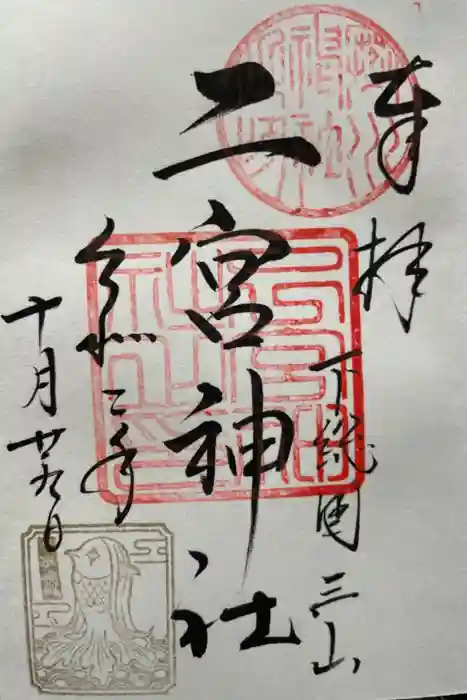 奉拝
下総国三山
二宮神社
令和三年
十月廿九日